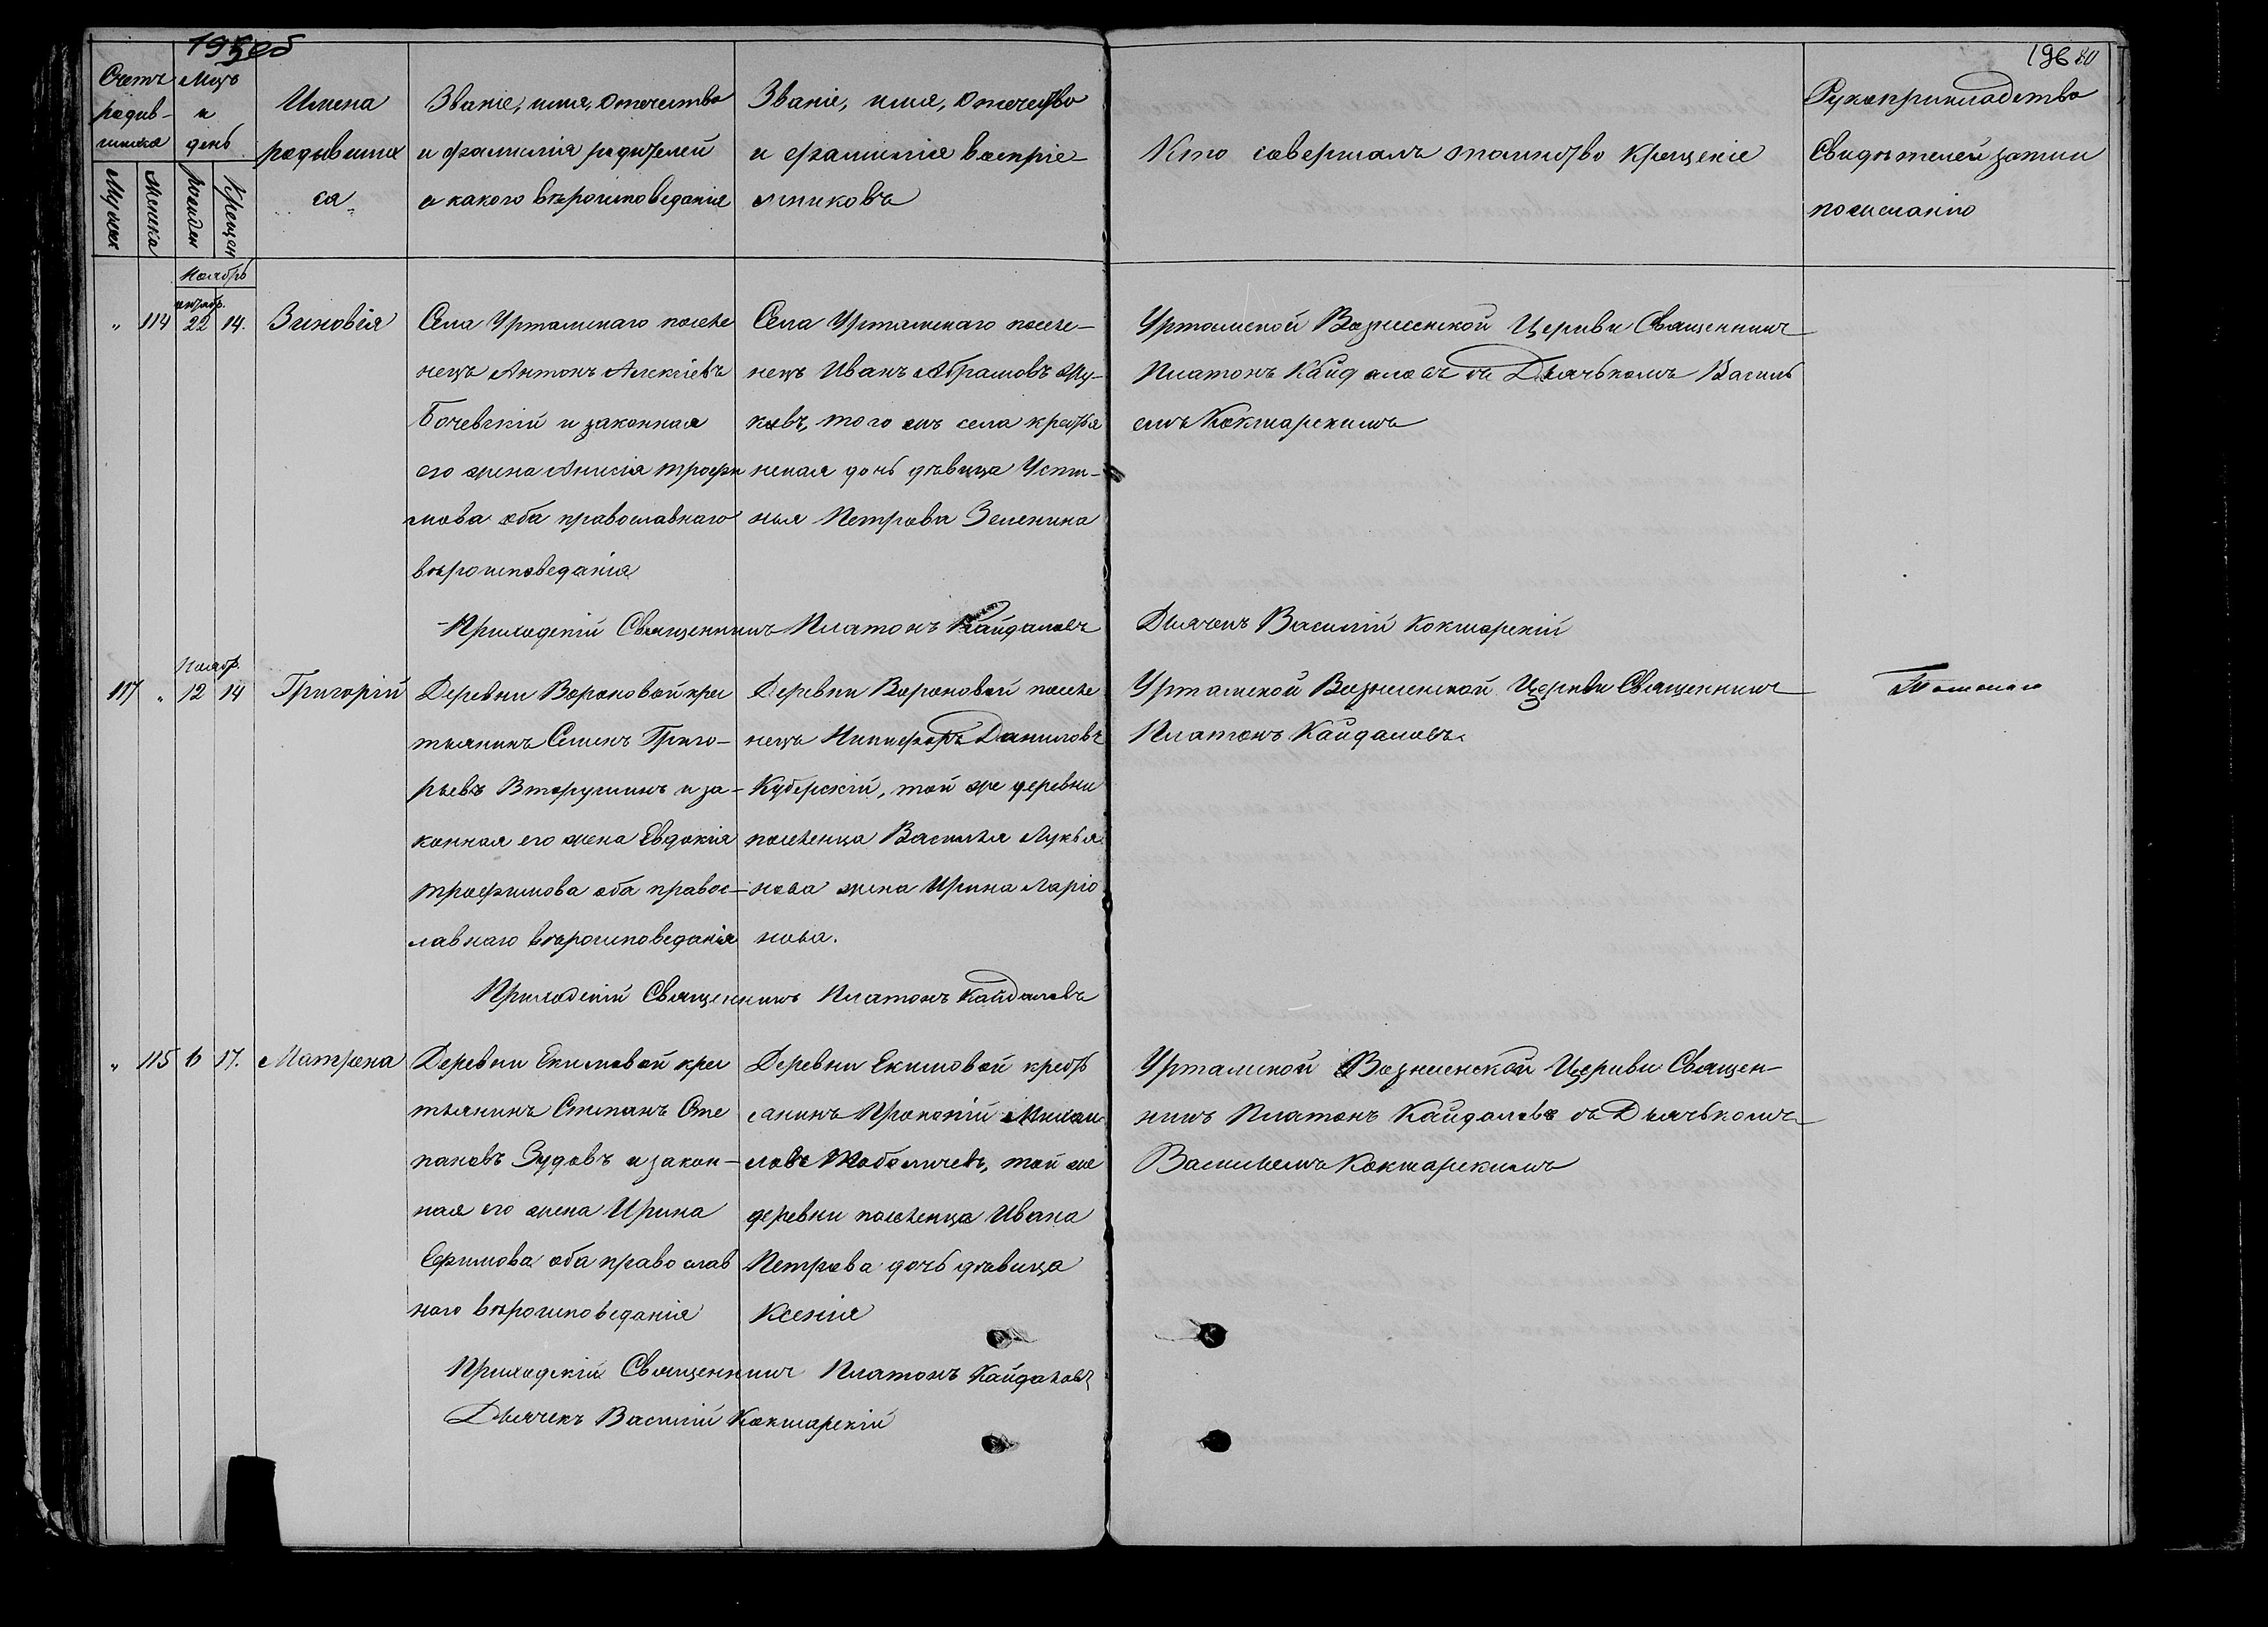 195об
196 80
Счетъ
родив-
шихся
Мужск
Женска
Мцъ
и
день
рожден
Крещен
Имена
родивших
ся
Званіе, имя, отчество
и фамилія родителей
и какого вѣроисповеданія
Званіе, имя, отчество
и фамилія воспріе-
мниковъ
Кто совершалъ таинство крещенія
Рукоприкладство
Свидѣтелей записи
по желанію
Ноябрь
октябр.
" 114 22 14.
Зиновія
Села Уртамскаго поселе
нецъ Антонъ Алексіевъ
Бочевскій и законная
его жена Анисія Трофи
мова оба православнаго
вѣроисповеданія
Села Уртамскаго поселе-
нецъ Иванъ Абрамовъ
того жъ села крестья
нская дочь дѣвица Усти-
нья Петрова Зеленина
Уртамской Вознесенской Церкви Священникъ
Платонъ Кайдаловъ съ Дьячькомъ Василь
емъ Кокшарскимъ
Приходскій Священникъ Платонъ Кайдаловъ
Дьячекъ Василій Кокшарскій
Ноябр.
117 " 12 14
Григорій
Деревни Вороновой крес
тьянинъ Семенъ Григо-
рьевъ Вторушинъ и за-
конная его жена Евдокія
Трофимова оба правос-
лавнаго вѣроисповеданія
Деревни Вороновой поселе
нецъ Никифоръ Даниловъ
Куберскій, той же деревни
поселенца Василья Лукья
нова жена Ирина Ларіо
нова.
Уртамской Вознесенской Церкви Священникъ
Платонъ Кайдаловъ.
Приходскій Священникъ Платонъ Кайдаловъ
" 115 6 17.
Матрона
Деревни Екимовой крес
тьянинъ Степанъ Сте
пановъ Зудовъ и закон-
ная его жена Ирина
Ефимова оба православ
наго вѣроисповеданія
Деревни Екимовой кресть
янинъ Прокопій Михаи
ловъ той же
деревни поселенца Ивана
Петрова дочь дѣвица
Ксенія
Уртамской Вознесенской Церкви Священ-
никъ Платонъ Кайдаловъ съ Дьячькомъ
Васильемъ Кокшарскимъ
Приходскій Священникъ Платонъ Кайдаловъ
Дьячекъ Василій Кокшарскій